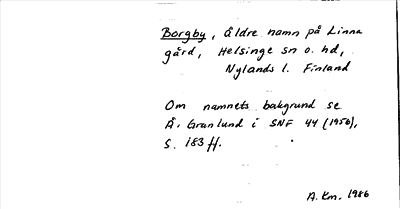 Borgby, äldre namn på Linna
gård, Helsinge sn o. hd,
Nylands l. Finland
Om namnets bakgrund se
Å. Granlund i SNF 44 (1956),
s. 183 ff.
A. Km. 1986